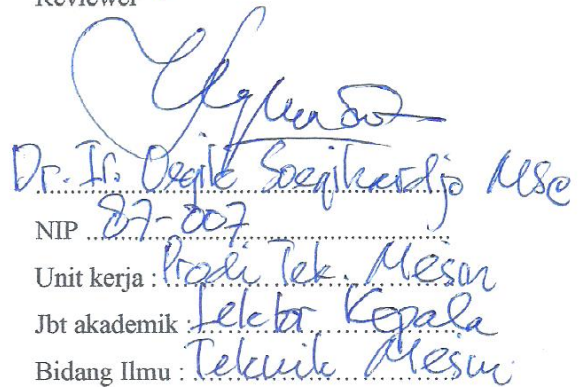 Reviewer
Dr. Ir. Oegik Soegihardjo MSc
NIP 87-007
Unit kerja : Prodi Tek. Mesin
Jbt akademik : Lektor Kepala
Bidang Ilmu : Teknik Mesin